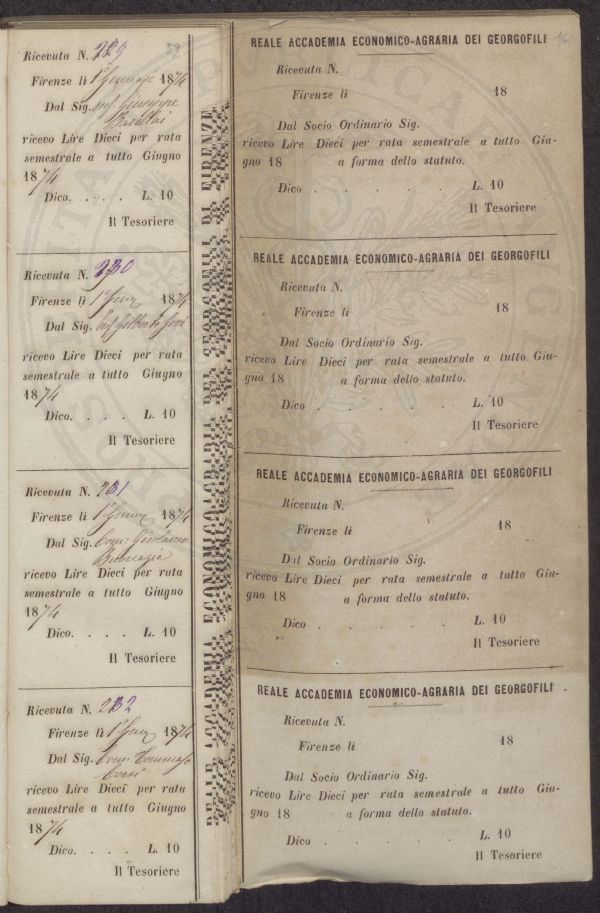 Ricevuta N. 229
59
Firenze lì 1° Gennajo 1874
Dal Sig. Giuseppe
ricevo Lire Dieci per rata
semestrale a tutto Giugno
1874
Dico. . . . . L. 10
Il Tesoriere
Ricevuta N. 230
Firenze lì 1° Genn 1874
Dal Sig. Gilberto Govi
ricevo Lire Dieci per rata
semestrale a tutto Giugno
1874
Dico. . . . L. 10
Il Tesoriere
Ricevuta N. 231
Firenze lì 1° Genn 1874
Dal Sig. Com. Girolamo
ricevo Lire Dieci per rata
semestrale a tutto Giugno
1874
Dico. . . . L. 10
Il Tesoriere
Ricevuta N. 232
Firenze lì 1° Genn 1874
Dal Sig. Com. Tommaso
Corsi
ricevo Lire Dieci per rata
semestrale a tutto Giugno
1874
Dico. . . . L. 10
Il Tesoriere
REALE ACCADEMIA ECONOMICO-AGRARIA DEI GEORGOFILI DI FIRENZE
REALE ACCADEMIA ECONOMICO-AGRARIA DEI GEORGOFILI
Ricevuta N.
Firenze lì 18
Dal Socio Ordinario Sig.
ricevo Lire Dieci per rata semestrale a tutto Giu-
gno 18 a forma dello statuto.
Dico . . . . . L. 10
Il Tesoriere
REALE ACCADEMIA ECONOMICO-AGRARIA DEI GEORGOFILI
Ricevuta N.
Firenze lì 18
Dal Socio Ordinario Sig.
ricevo Lire Dieci per rata semestrale a tutto Giu-
gno 18 a forma dello statuto.
Dico . . . . . L. 10
Il Tesoriere
REALE ACCADEMIA ECONOMICO-AGRARIA DEI GEORGOFILI
Ricevuta N.
Firenze lì 18
Dal Socio Ordinario Sig.
ricevo Lire Dieci per rata semestrale a tutto Giu-
gno 18 a forma dello statuto.
Dico . . . . . L. 10
Il Tesoriere
REALE ACCADEMIA ECONOMICO-AGRARIA DEI GEORGOFILI
Ricevuta N.
Firenze lì 18
Dal Socio Ordinario Sig.
ricevo Lire Dieci per rata semestrale a tutto Giu-
gno 18 a forma dello statuto.
Dico . . . . . L. 10
Il Tesoriere